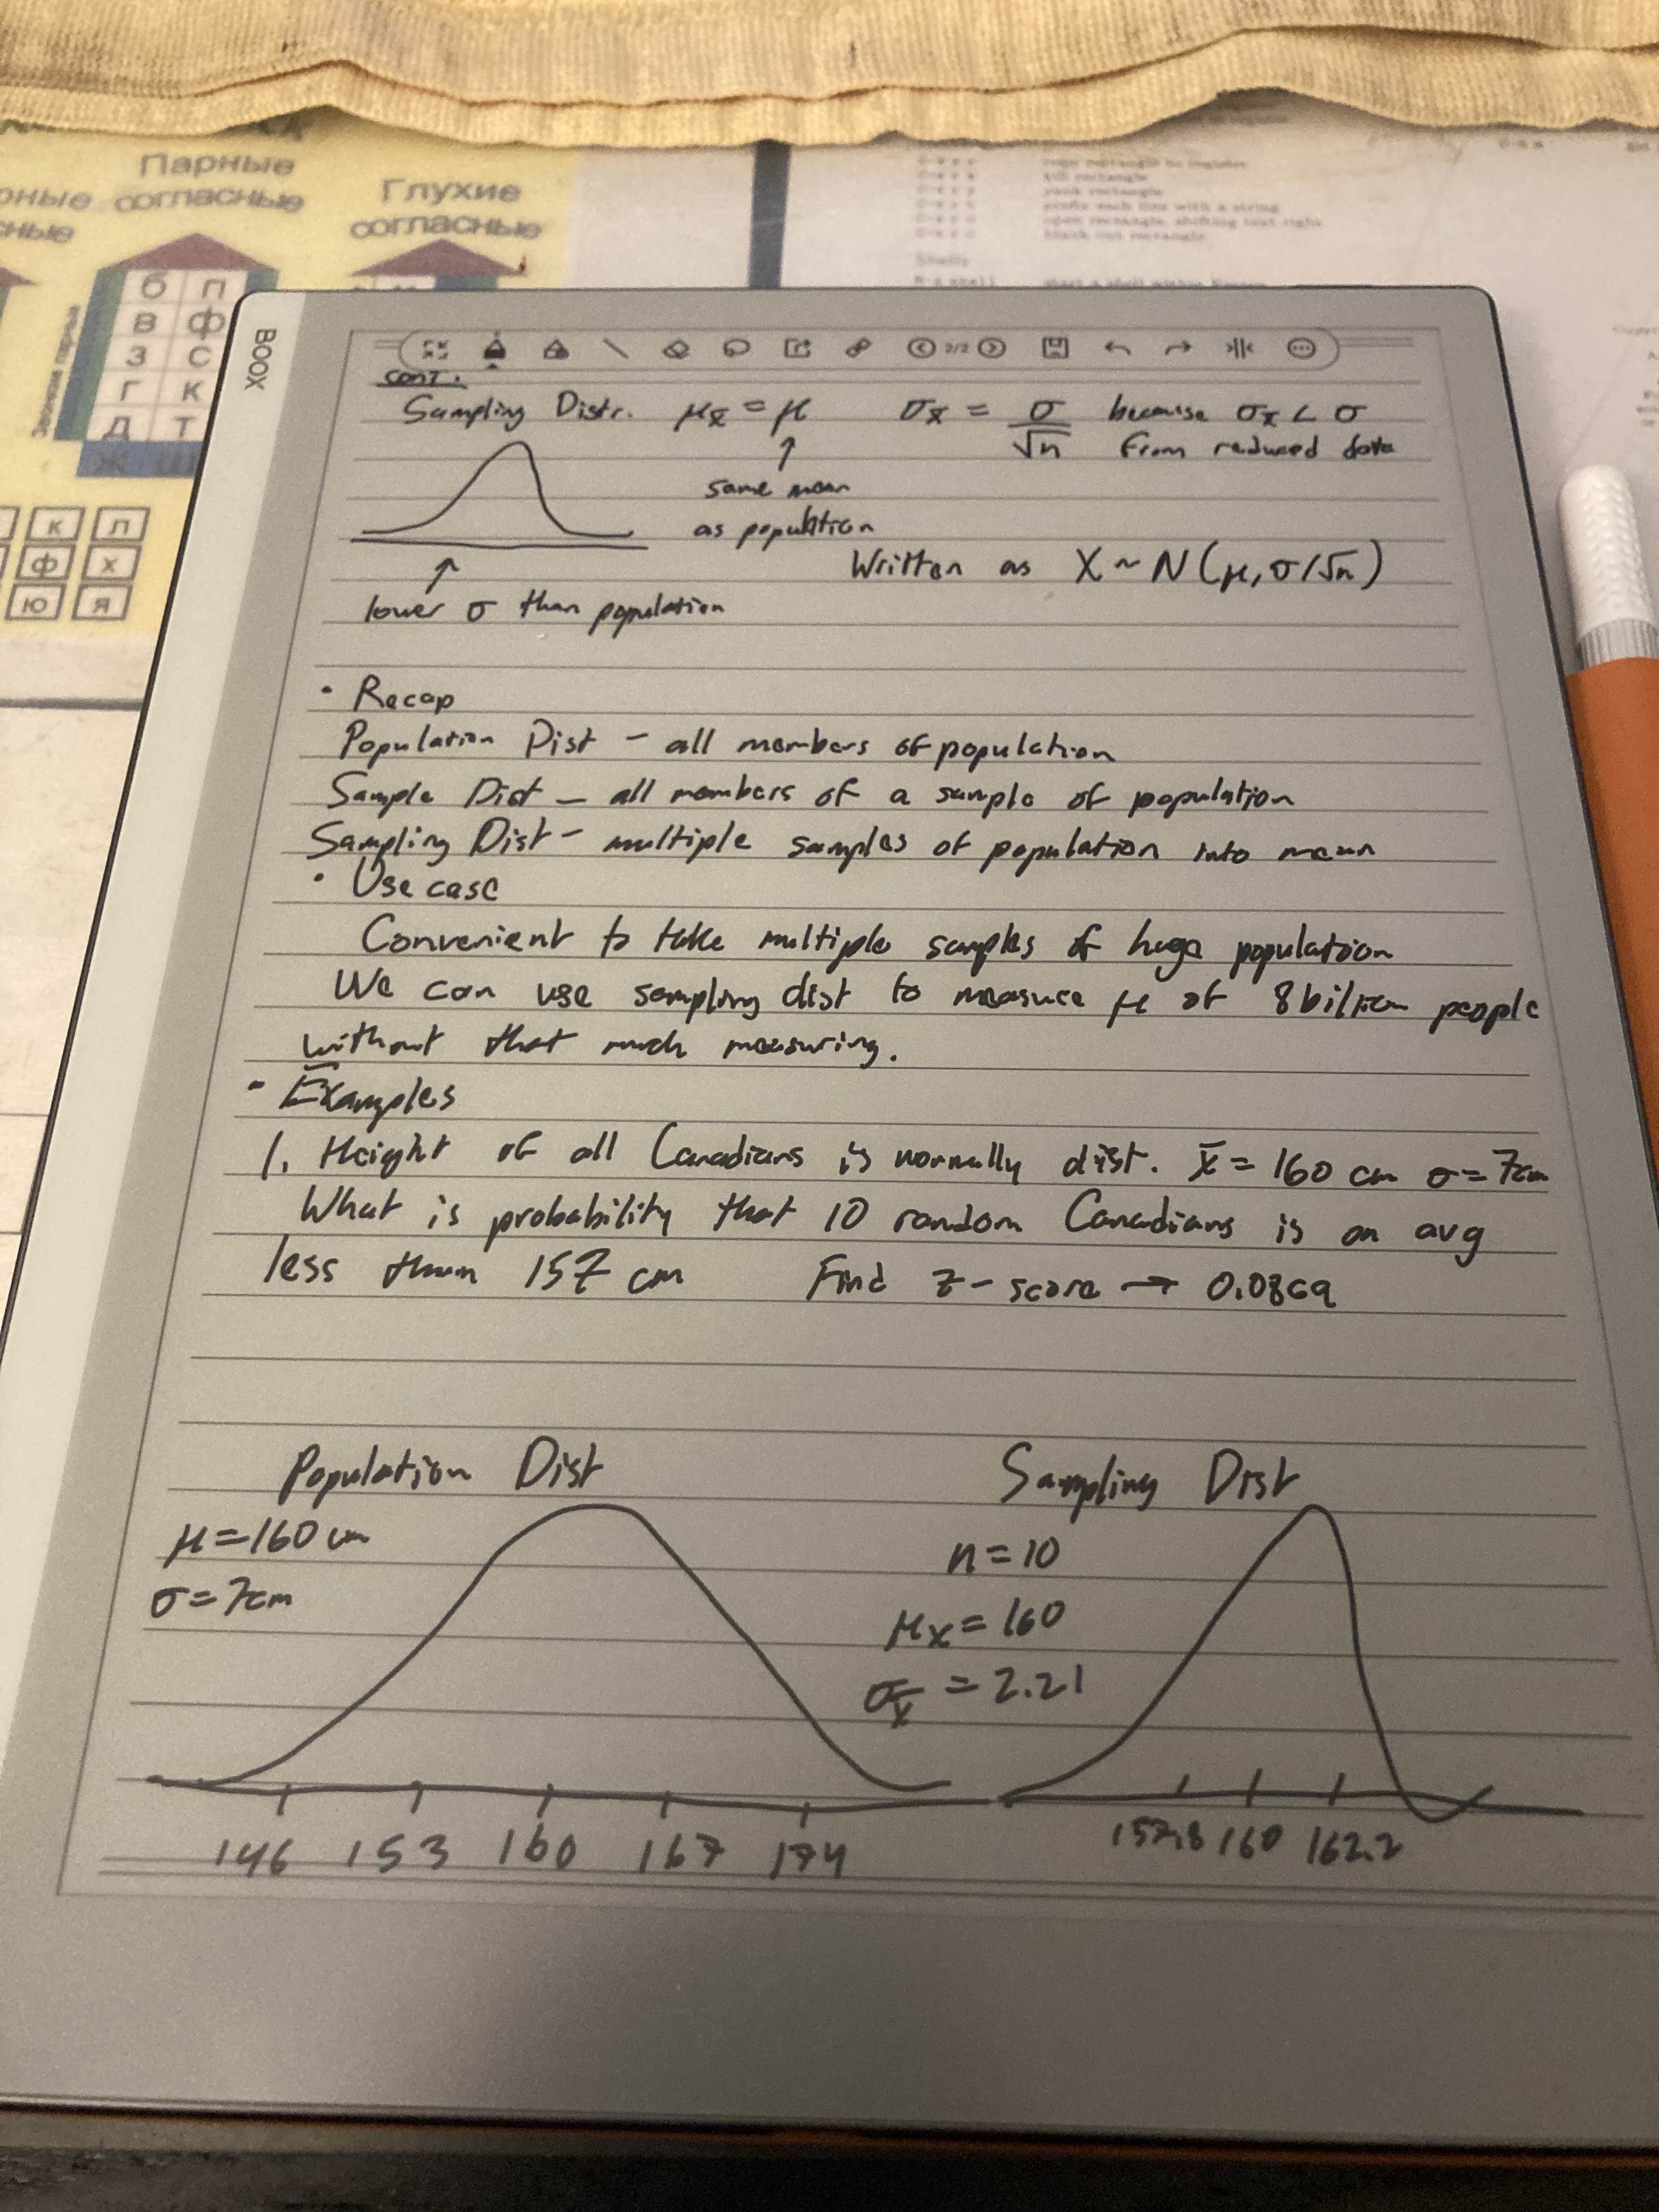 Парные
согласные
Глухие
согласные
Звонкие парные
б п
в ф
з с
г к
д т
ж ш
к л
ф х
ю я
yank rectangle
prefix each line with a string
open rectangle, shifting text right
blank out rectangle
Shells
BOOX
2/2
CONT.
Sampling Distr. μx̄ = μ σx̄ = σ/√n because σx̄ < σ
from reduced data
same mean
as population
Written as X ~ N(μ, σ/√n)
lower σ than population
• Recap
Population Dist - all members of population
Sample Dist - all members of a sample of population
Sampling Dist - multiple samples of population into mean
• Use case
Convenient to take multiple samples of huge population
We can use sampling dist to measure μ of 8 billion people
without that much measuring.
• Examples
1. Height of all Canadians is normally dist. x̄ = 160 cm σ = 7cm
What is probability that 10 random Canadians is on avg
less than 157 cm Find z-score → 0.0869
Population Dist
μ = 160 cm
σ = 7cm
146 153 160 167 174
Sampling Dist
n = 10
μx = 160
σx̄ = 2.21
157.8 160 162.2